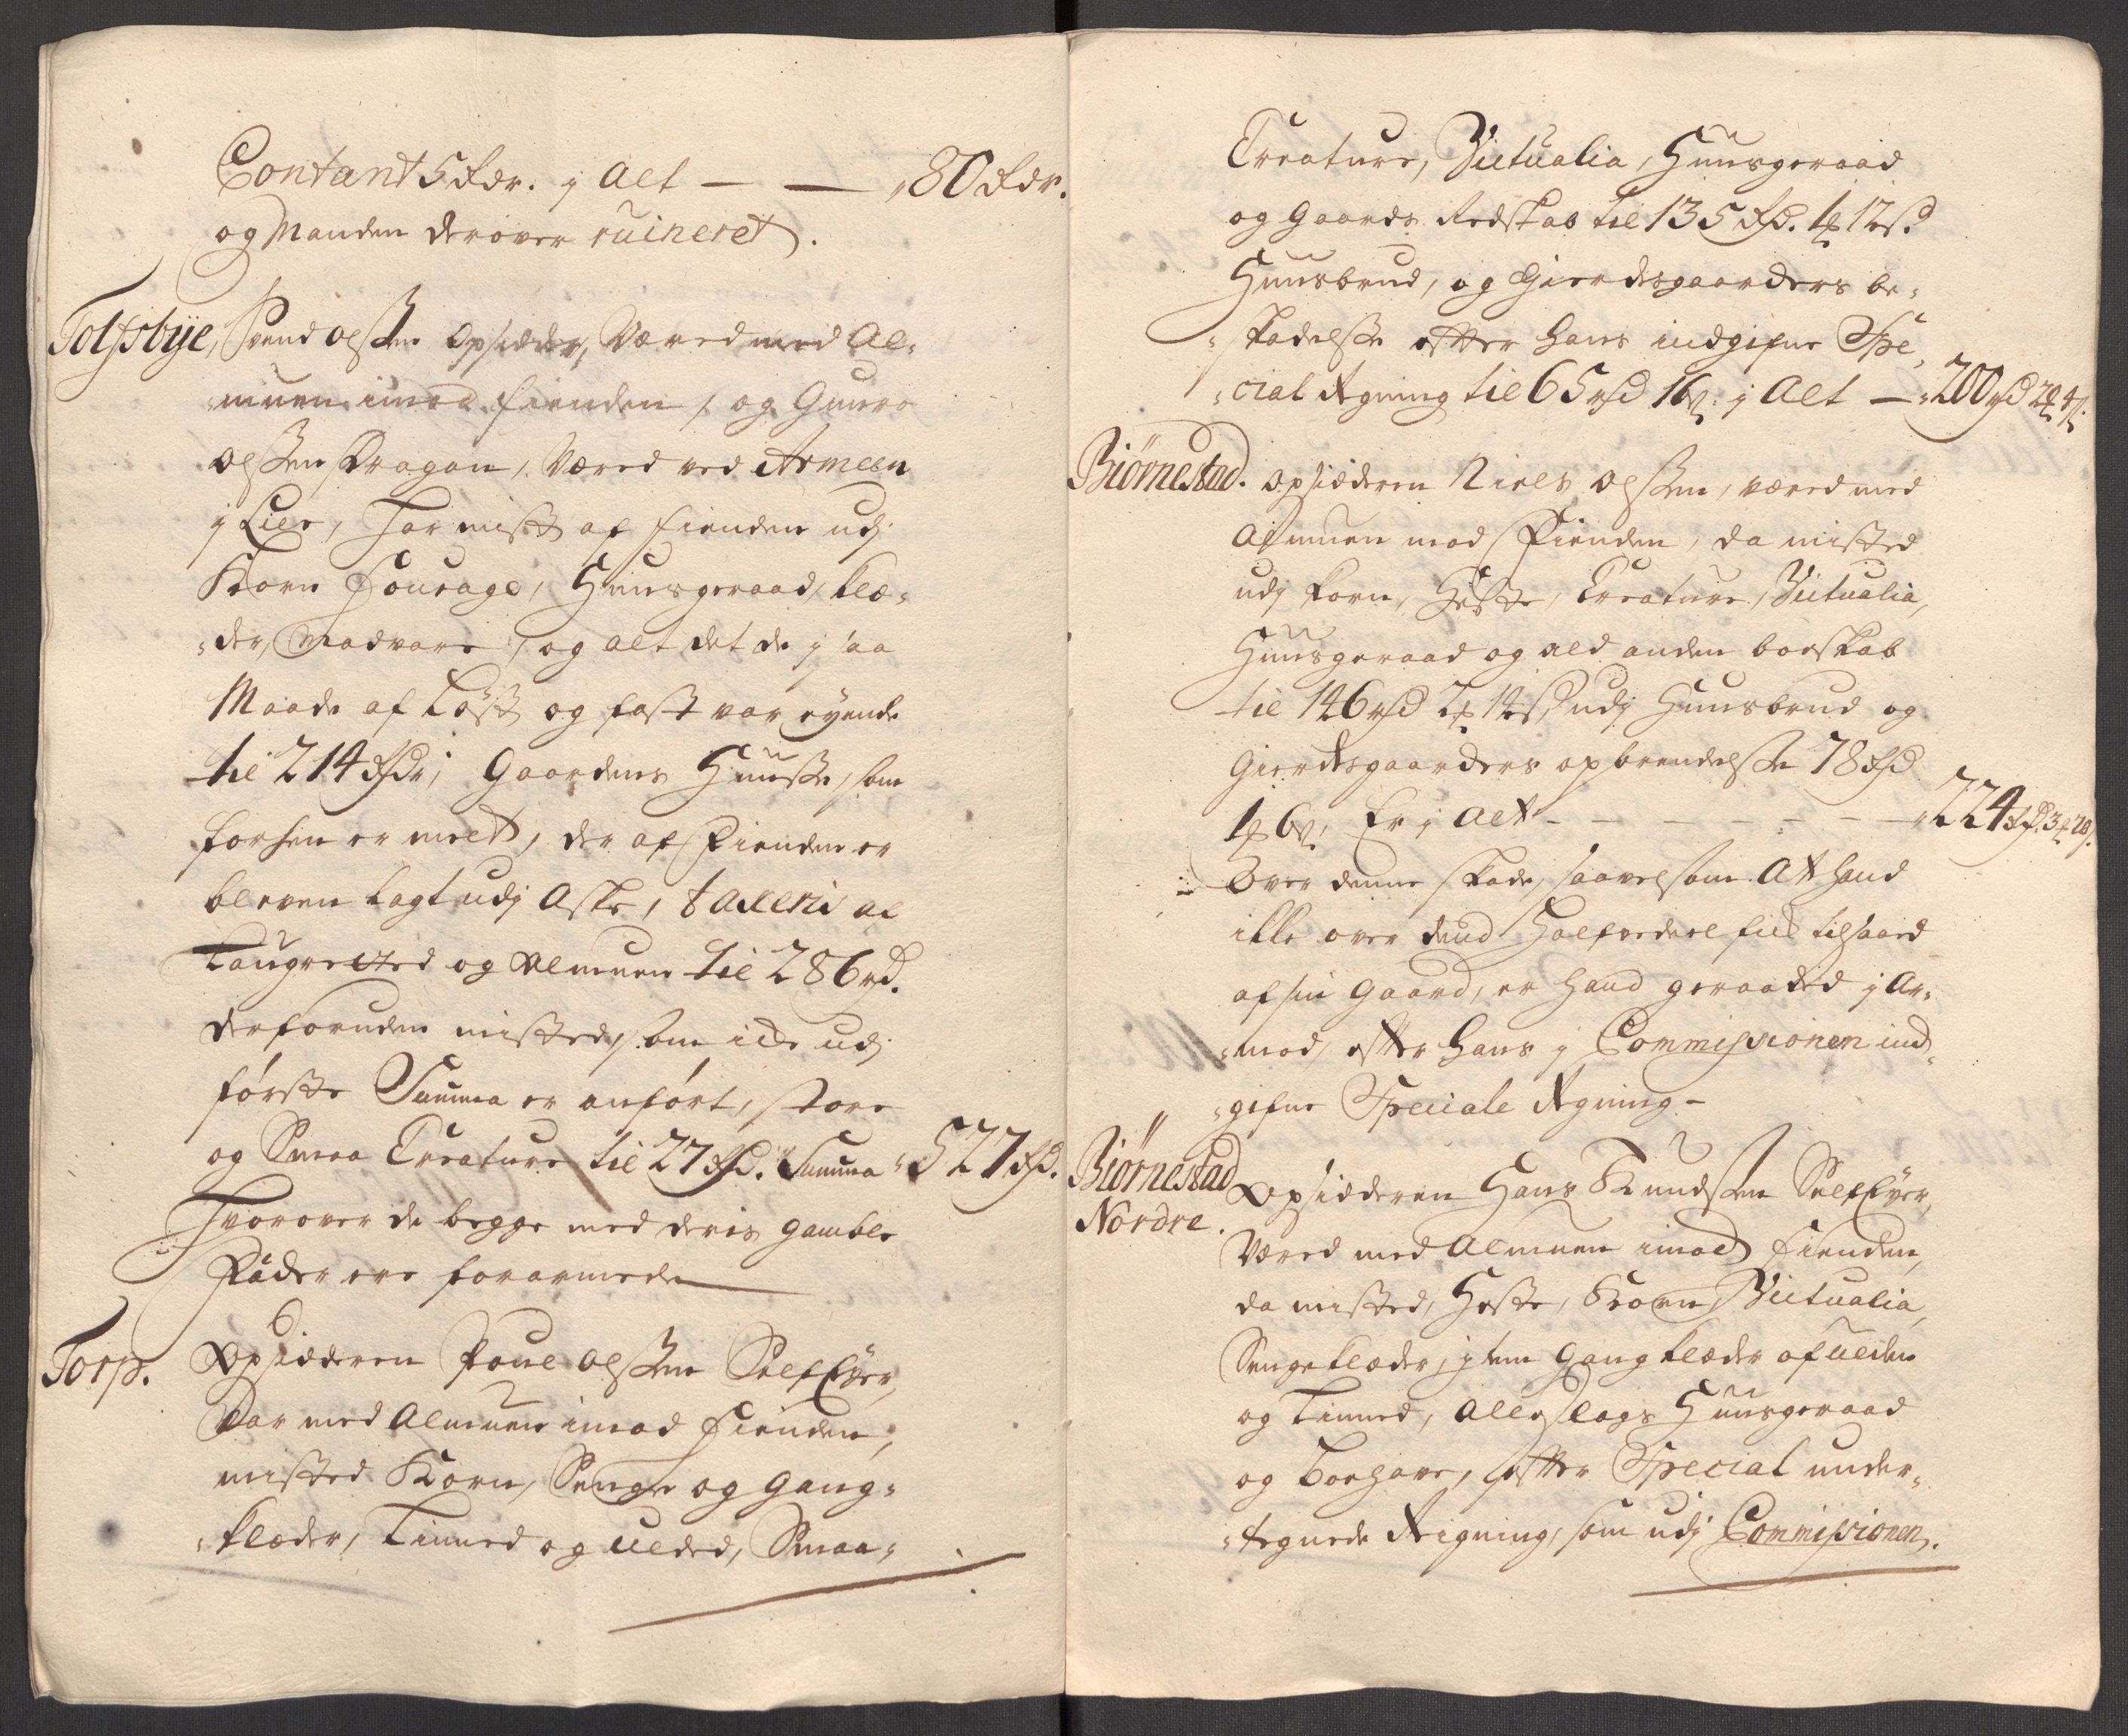 Contant 5 Rdr. j Alt — — „80 Rdr.
og Manden derover ruineret.
Tolfsbye, Svend Olssen Opsider, Været med Al-
muen imod fienden, og Gunro
Olssen Dragon, Været ved Armeen
j Lier, Har mist af fienden udj
Korn Fourage, Huusgeraad, klæ-
der, Madvare, og alt det de j saa
Maade af Løst og fast var eyende
til 214 Rdr; Gaardens Huusse, som
forhen er meldt, der af Fienden er
bleven lagt udj Aske, taxerit af
Laugretted og Almuen til 286 rd.
derforuden misted, som icke udj
første Summa er anført, store
og Smaa Creature til 27 Rd. Summa „527 Rd.
Hvorover de begge med deris gamble
Fader ere forarmede
Torp. Opsidderen Poul Olssen SelfEyer,
Var med Almuen imod fienden,
misted Korn, Senge og Gang-
klæder, Linned og ulded, Smaa-
Creature, Victualia, Huusgeraad
og Gaards Redskab til 135 Rd. 1 12 s.
Huusbrud, og Gierdesgaarders be-
skadelsse efter hans indgifne Spe-
cial Rgning til 65 rd 16 s. j Alt — „200 rd 2 4 s.
Biørnestad. Opsidderen Niels Olssen, været med
Almuen mod Fienden, da misted
udj korn, Heste, Creature, Victualia,
Huusgeraad og ald anden boeskab
til 146 rd 2 14 s, udj Huusbrud og
Gierdesgaarders opbrendelsse 78 Rd
1 6 s, Er j Alt — — — — — „224 Rd. 3 20 s.
Over denne skade, saavelsom At hand
ikke over dend Halfvedeel fik tilsaaed
af sin Gaard, er hand geraaded j Ar-
mod, efter hans j Commissionen ind-
gifne Speciale Rgning –
Biørnestad Nordre. Opsidderen Hans Knudssen SelfEyer,
Været med Almuen imod fienden,
da misted, Heste, Korn, Victualia,
Sengeklæder, jtem Gangklæder af ulden
og Linned, Alleslags Huusgeraad
og Boehave, efter Special under-
tegnede Reigning, som udj Commissionen.